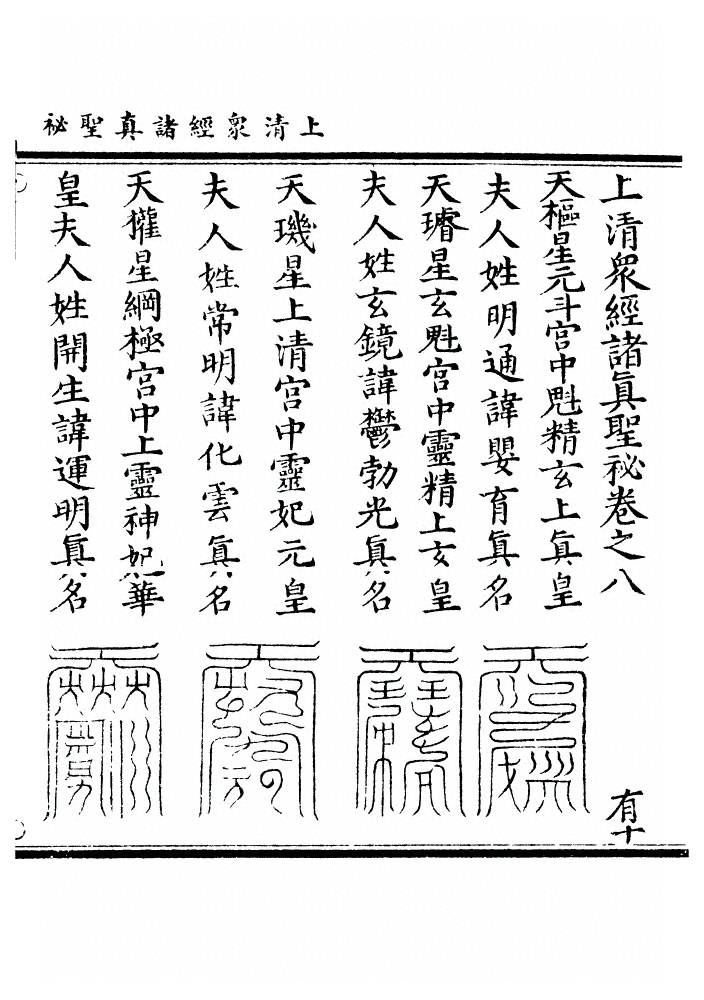 上清衆經諸真聖祕
上清衆經諸眞聖祕卷之八
有十
天樞星元斗宫中魁精玄上眞皇
夫人姓明通諱嬰育眞名
天璿星玄魁宫中靈精上玄皇
夫人姓玄鏡諱鬱勃光眞名
天璣星上清宫中靈妃元皇
夫人姓常明諱化雲眞名
天㩲星綱極宫中上靈神妃華
皇夫人姓開生諱運明眞名